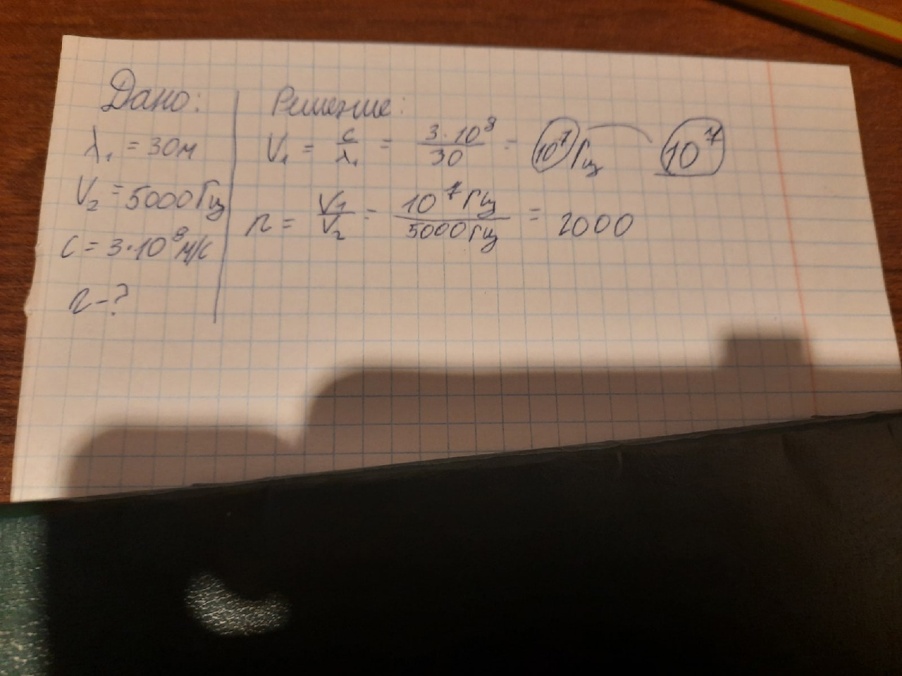 Дано:
λ₁ = 30м
V₂ = 5000Гц
C = 3·10⁸ м/с
n - ?
Решение:
V₁ = c/λ₁ = 3·10⁸/30 = 10⁷ Гц 10⁷
n = V₁/V₂ = 10⁷Гц/5000Гц = 2000